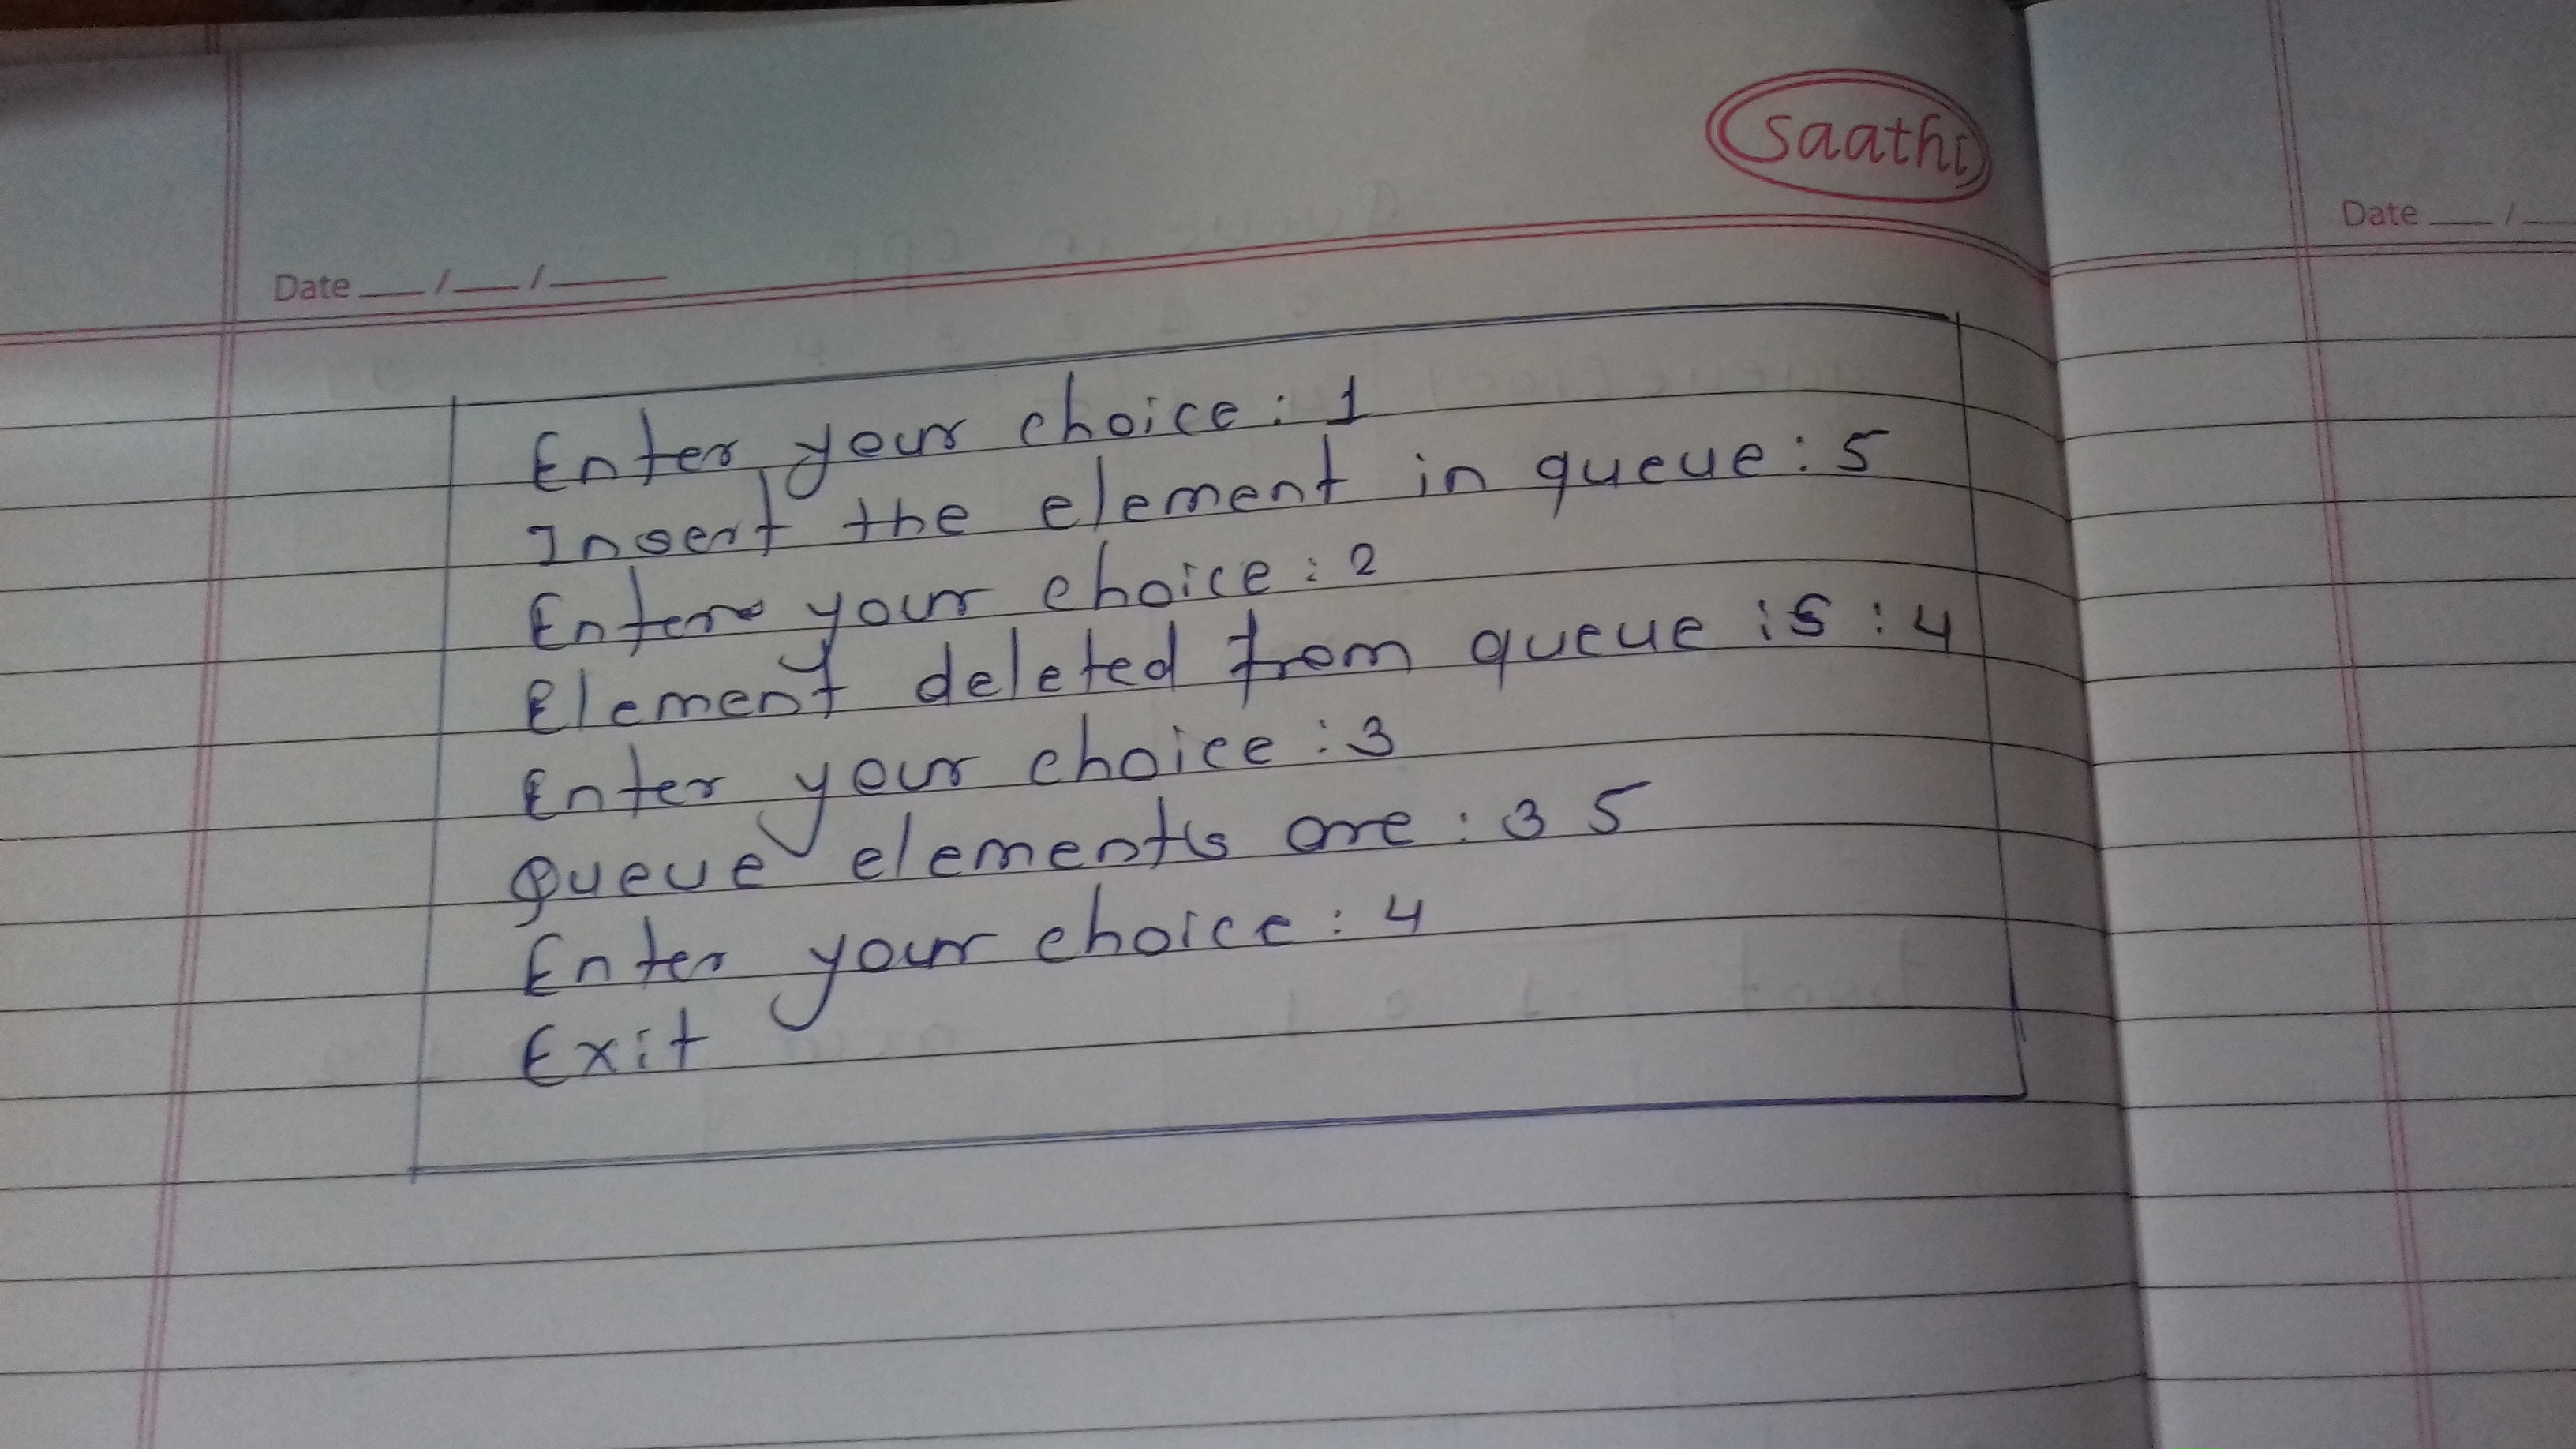 Saathi
Date __/__/__
Enter your choice : 1
Insert the element in queue : 5
Enter your choice : 2
Element deleted from queue is : 4
Enter your choice : 3
Queue elements are : 3 5
Enter your choice : 4
Exit
Date __/__